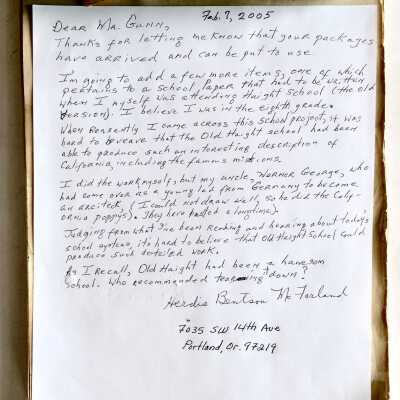 Feb. 7, 2005
Dear Ms. Gunn,
Thanks for letting me know that your packages
have arrived and can be put to use
I'm going to add a few more items, one of which
pertains to a school paper that had to be written
when I myself was attending Haight School (the old
version). I believe I was in the eighth grade.
When recently I came across this school project, it was
hard to that the Old Haight school had been
able to produce such an interesting description of
California, including the famous missions.
I did the work myself, but my uncle, Werner George, who
had come over as a young lad from Germany to become
an arcitect, (I could not draw well, so he did the Calif-
ornia poppys). They have lasted a longtime).
Judging from what I've been reading and hearing about today's
school system, it's hard to believe that Old Haight School could
produce such detailed work.
As I recall, Old Haight had been a hansom
school. Who recommended tearing down?
Herdis Bentson McFarland
7035 SW 14th Ave
Portland, Or. 97219